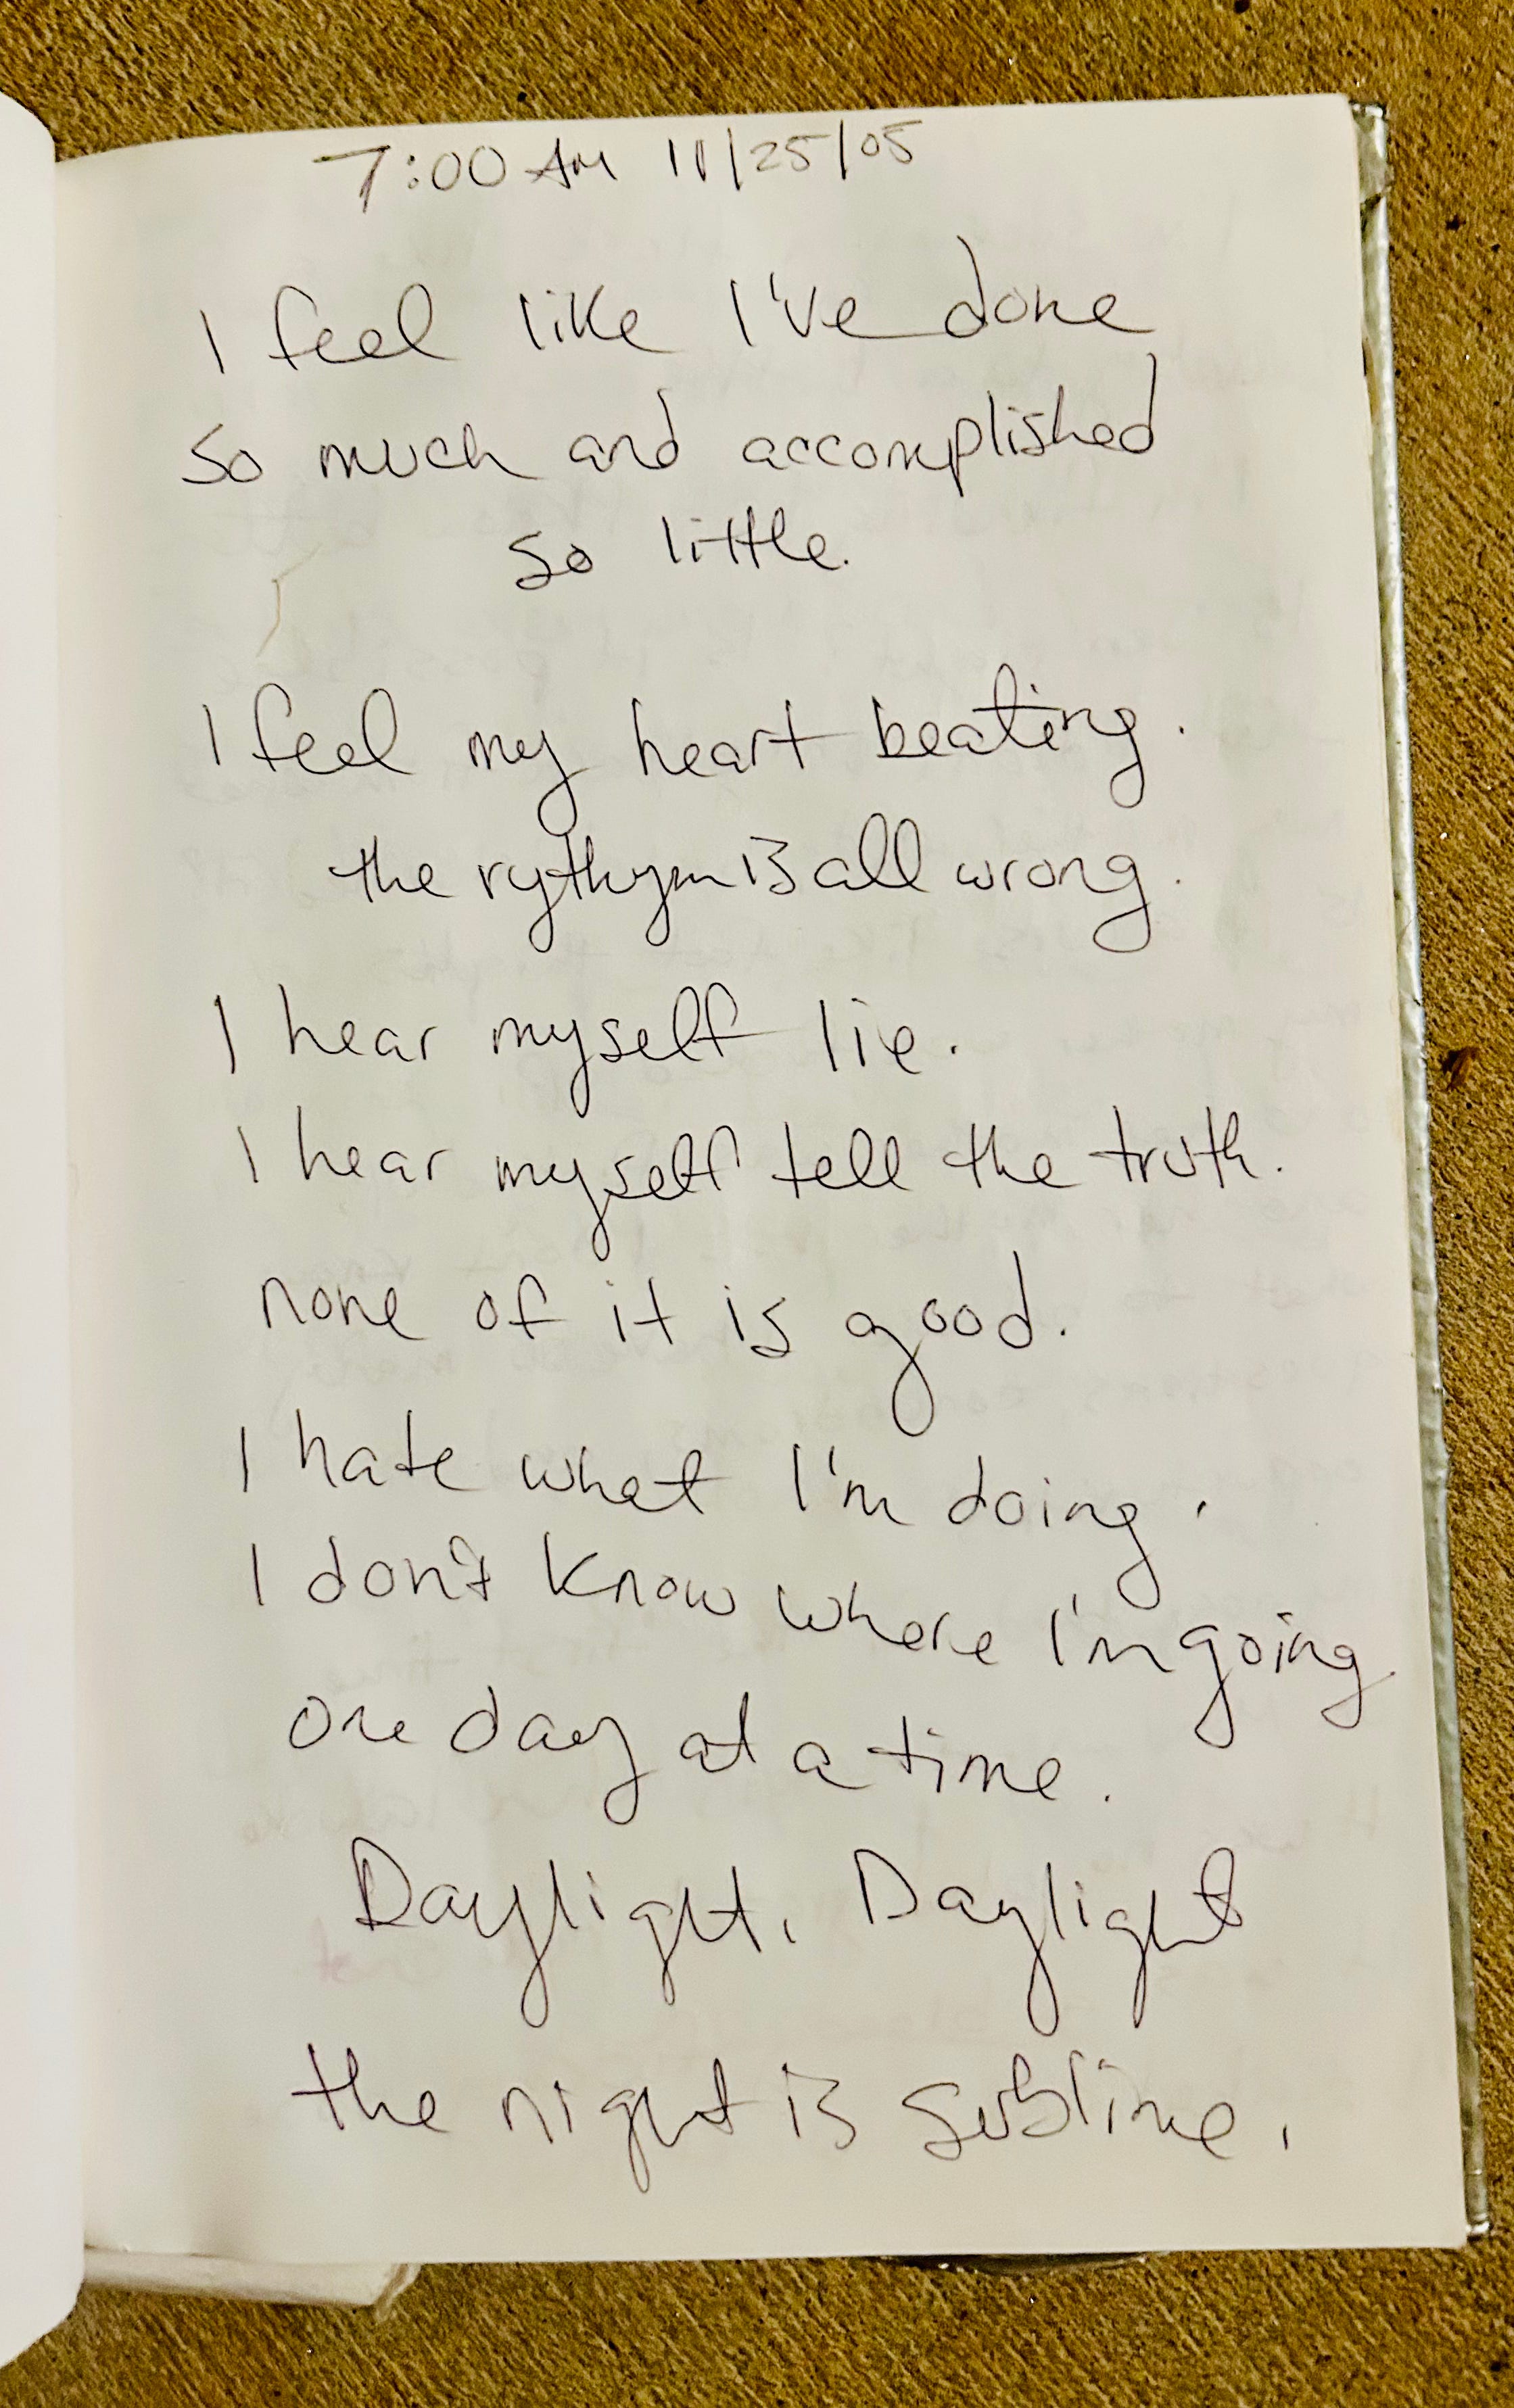 7:00 AM 11/25/05
I feel like I've done
so much and accomplished
so little.
I feel my heart beating.
the rythym is all wrong.
I hear myself lie.
I hear myself tell the truth.
none of it is good.
I hate what I'm doing.
I don't know where I'm going.
one day at a time.
Daylight. Daylight
the night is sublime.